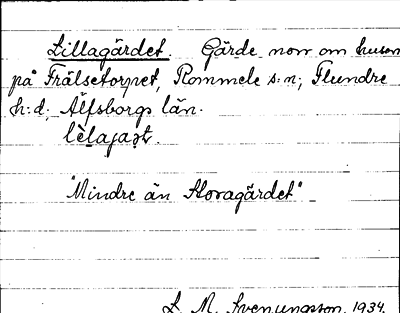 Lillagärdet. Gärde norr om husen
på Frälsetorpet, Rommele s:n; Flundre
h:d; Älfsborgs län.
"Mindre än Storagärdet"
L. M. Svenungsson. 1934.